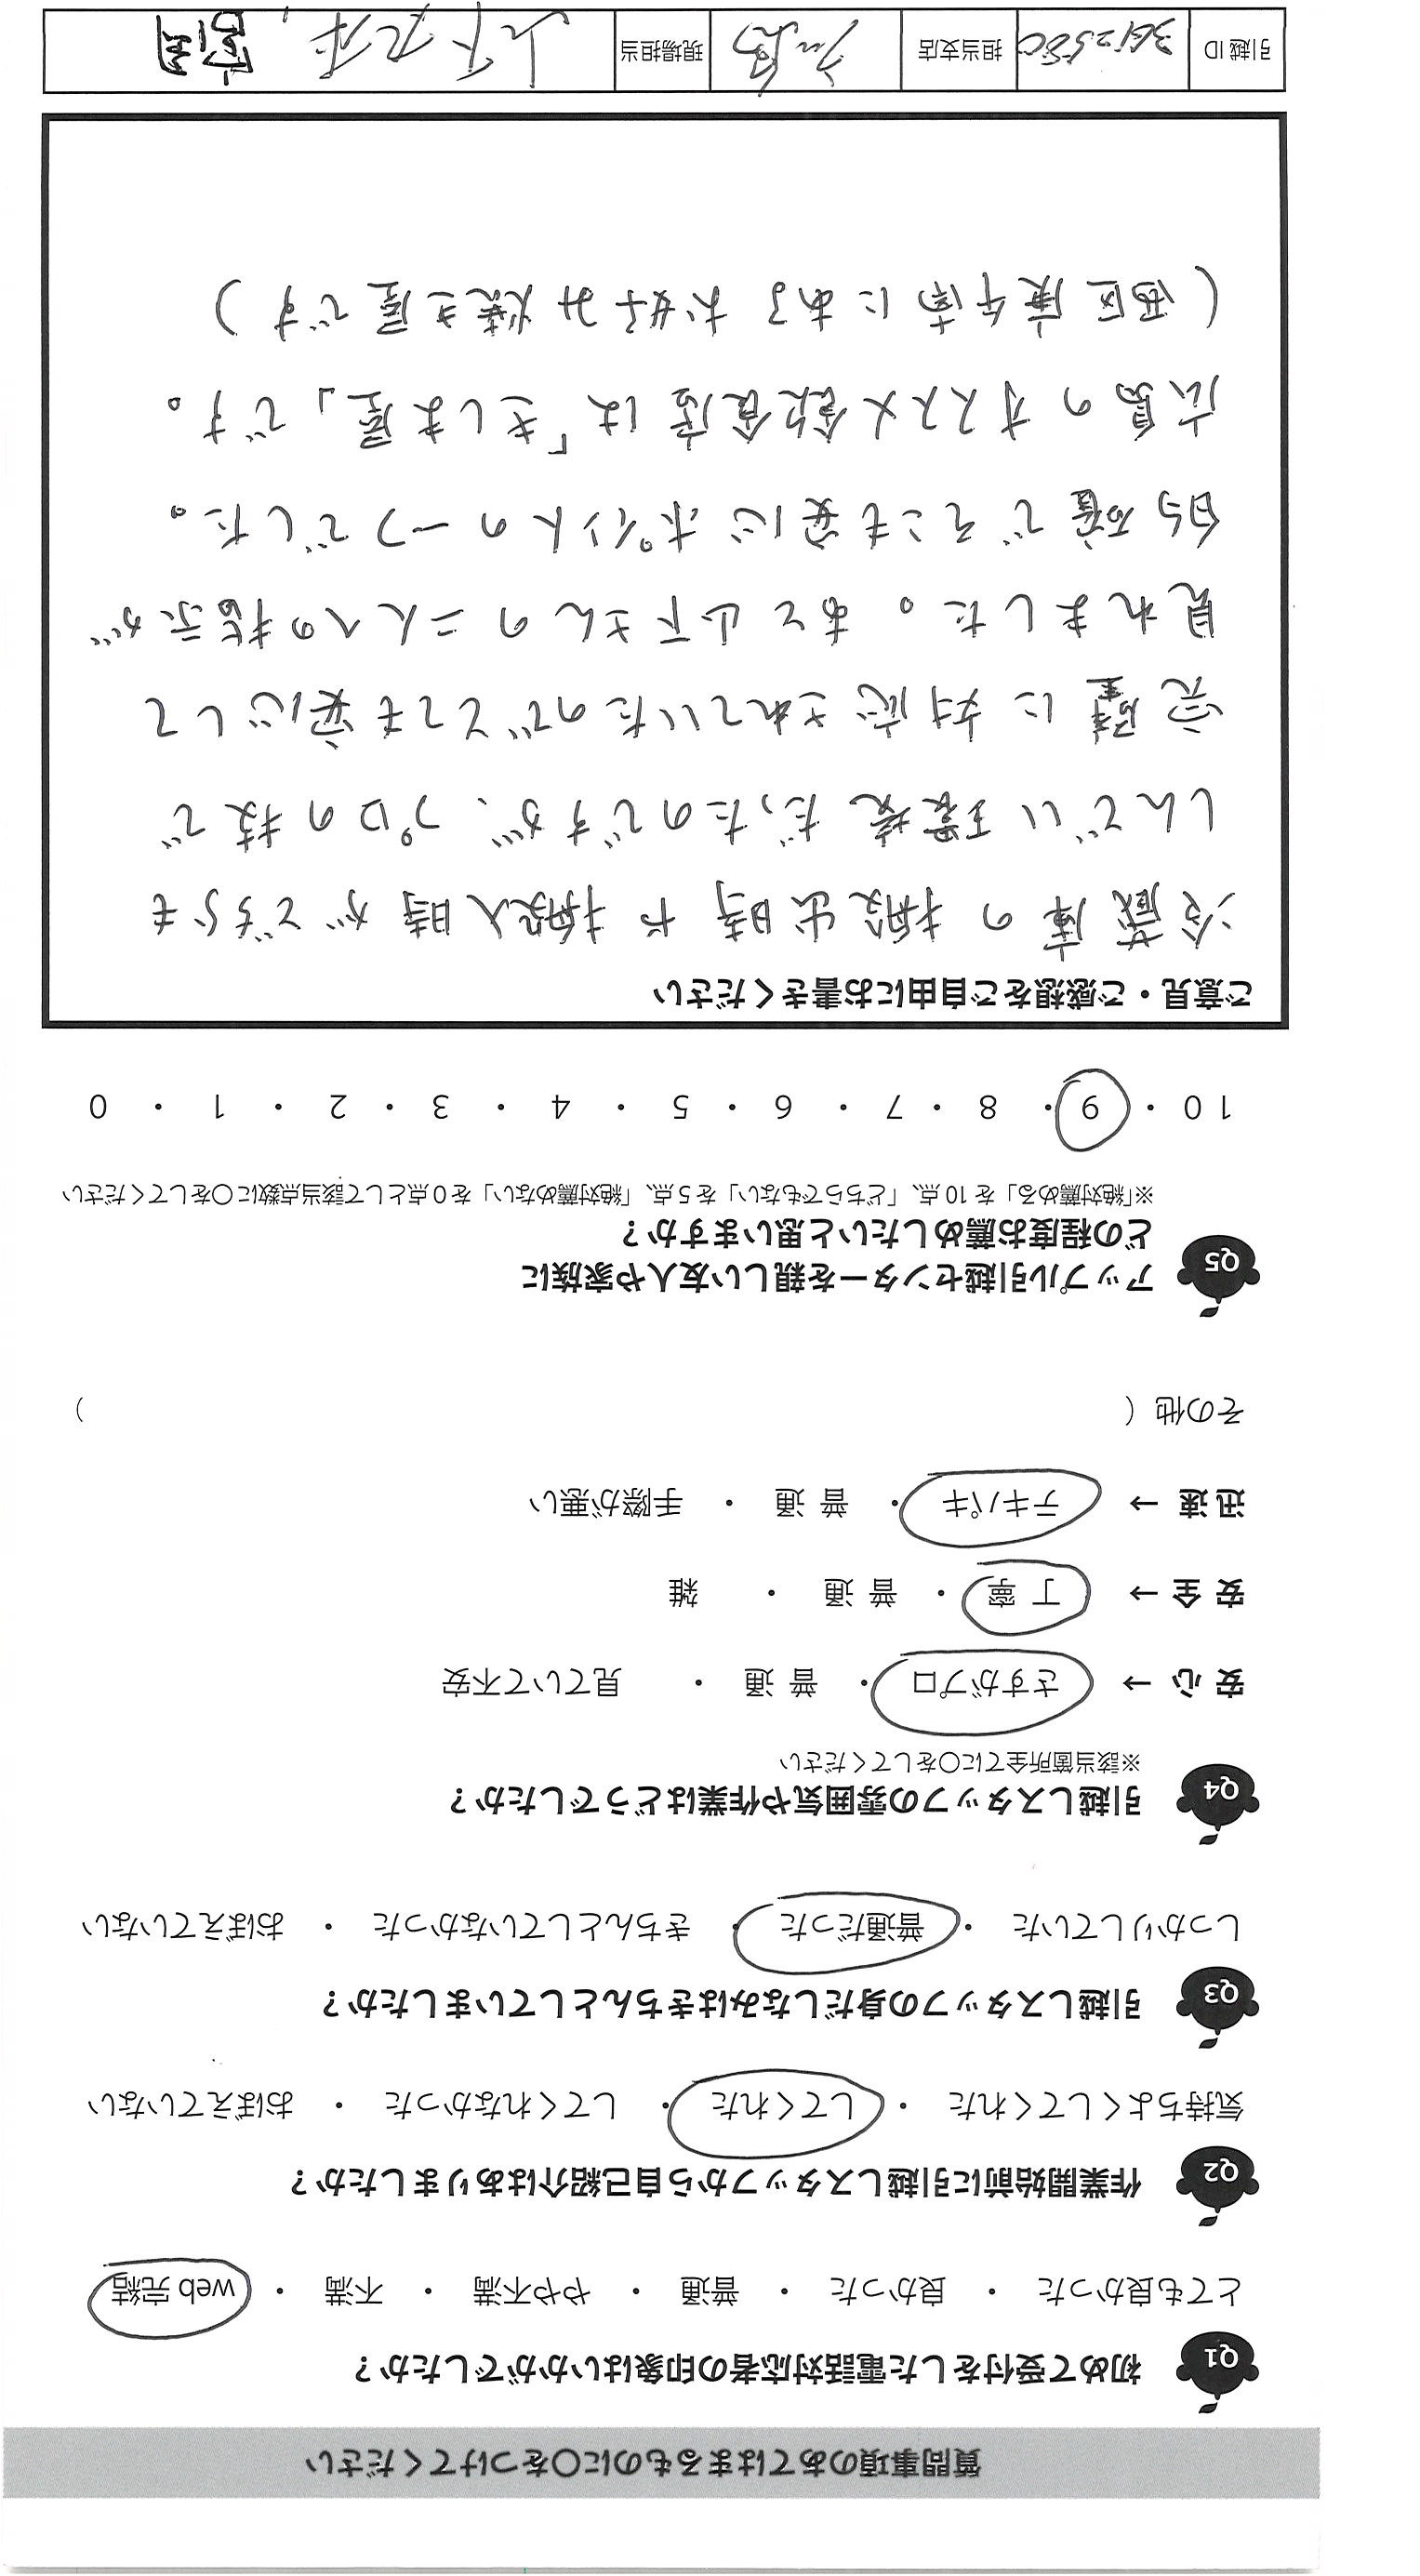 質問事項のあてはまるものに○をつけてください
Q1 初めて受付をした電話対応者の印象はいかがでしたか？
とても良かった ・ 良かった ・ 普通 ・ やや不満 ・ 不満 ・ web 完結
Q2 作業開始前に引越しスタッフから自己紹介はありましたか？
気持ちよくしてくれた ・ してくれた ・ してくれなかった ・ おぼえていない
Q3 引越しスタッフの身だしなみはきちんとしていましたか？
しっかりしていた ・ 普通だった ・ きちんとしていなかった ・ おぼえていない
Q4 引越しスタッフの雰囲気や作業はどうでしたか？
※該当箇所全てに○をしてください
安 心 → さすがプロ ・ 普 通 ・ 見ていて不安
安 全 → 丁 寧 ・ 普 通 ・ 雑
迅 速 → テキパキ ・ 普 通 ・ 手際が悪い
その他（ ）
Q5 アップル引越センターを親しい友人や家族に
どの程度お薦めしたいと思いますか？
※「絶対薦める」を 10 点、「どちらでもない」を 5 点、「絶対薦めない」を 0 点として該当点数に○をしてください
10 ・ 9 ・ 8 ・ 7 ・ 6 ・ 5 ・ 4 ・ 3 ・ 2 ・ 1 ・ 0
ご意見・ご感想をご自由にお書きください
冷蔵庫の搬出時や搬入時がどちらも
しんどい環境だったのですが、プロの技で
完璧に対応されていたのでとても安心して
見れました。あと山下さんの二人への指示が
的確でそこも安心ポイントの一つでした。
広島のオススメ飲食店は「きしま屋」です。
(西区庚午南にあるお好み焼き屋です)
引越 ID 3612580 担当支店 広島 現場担当 山下